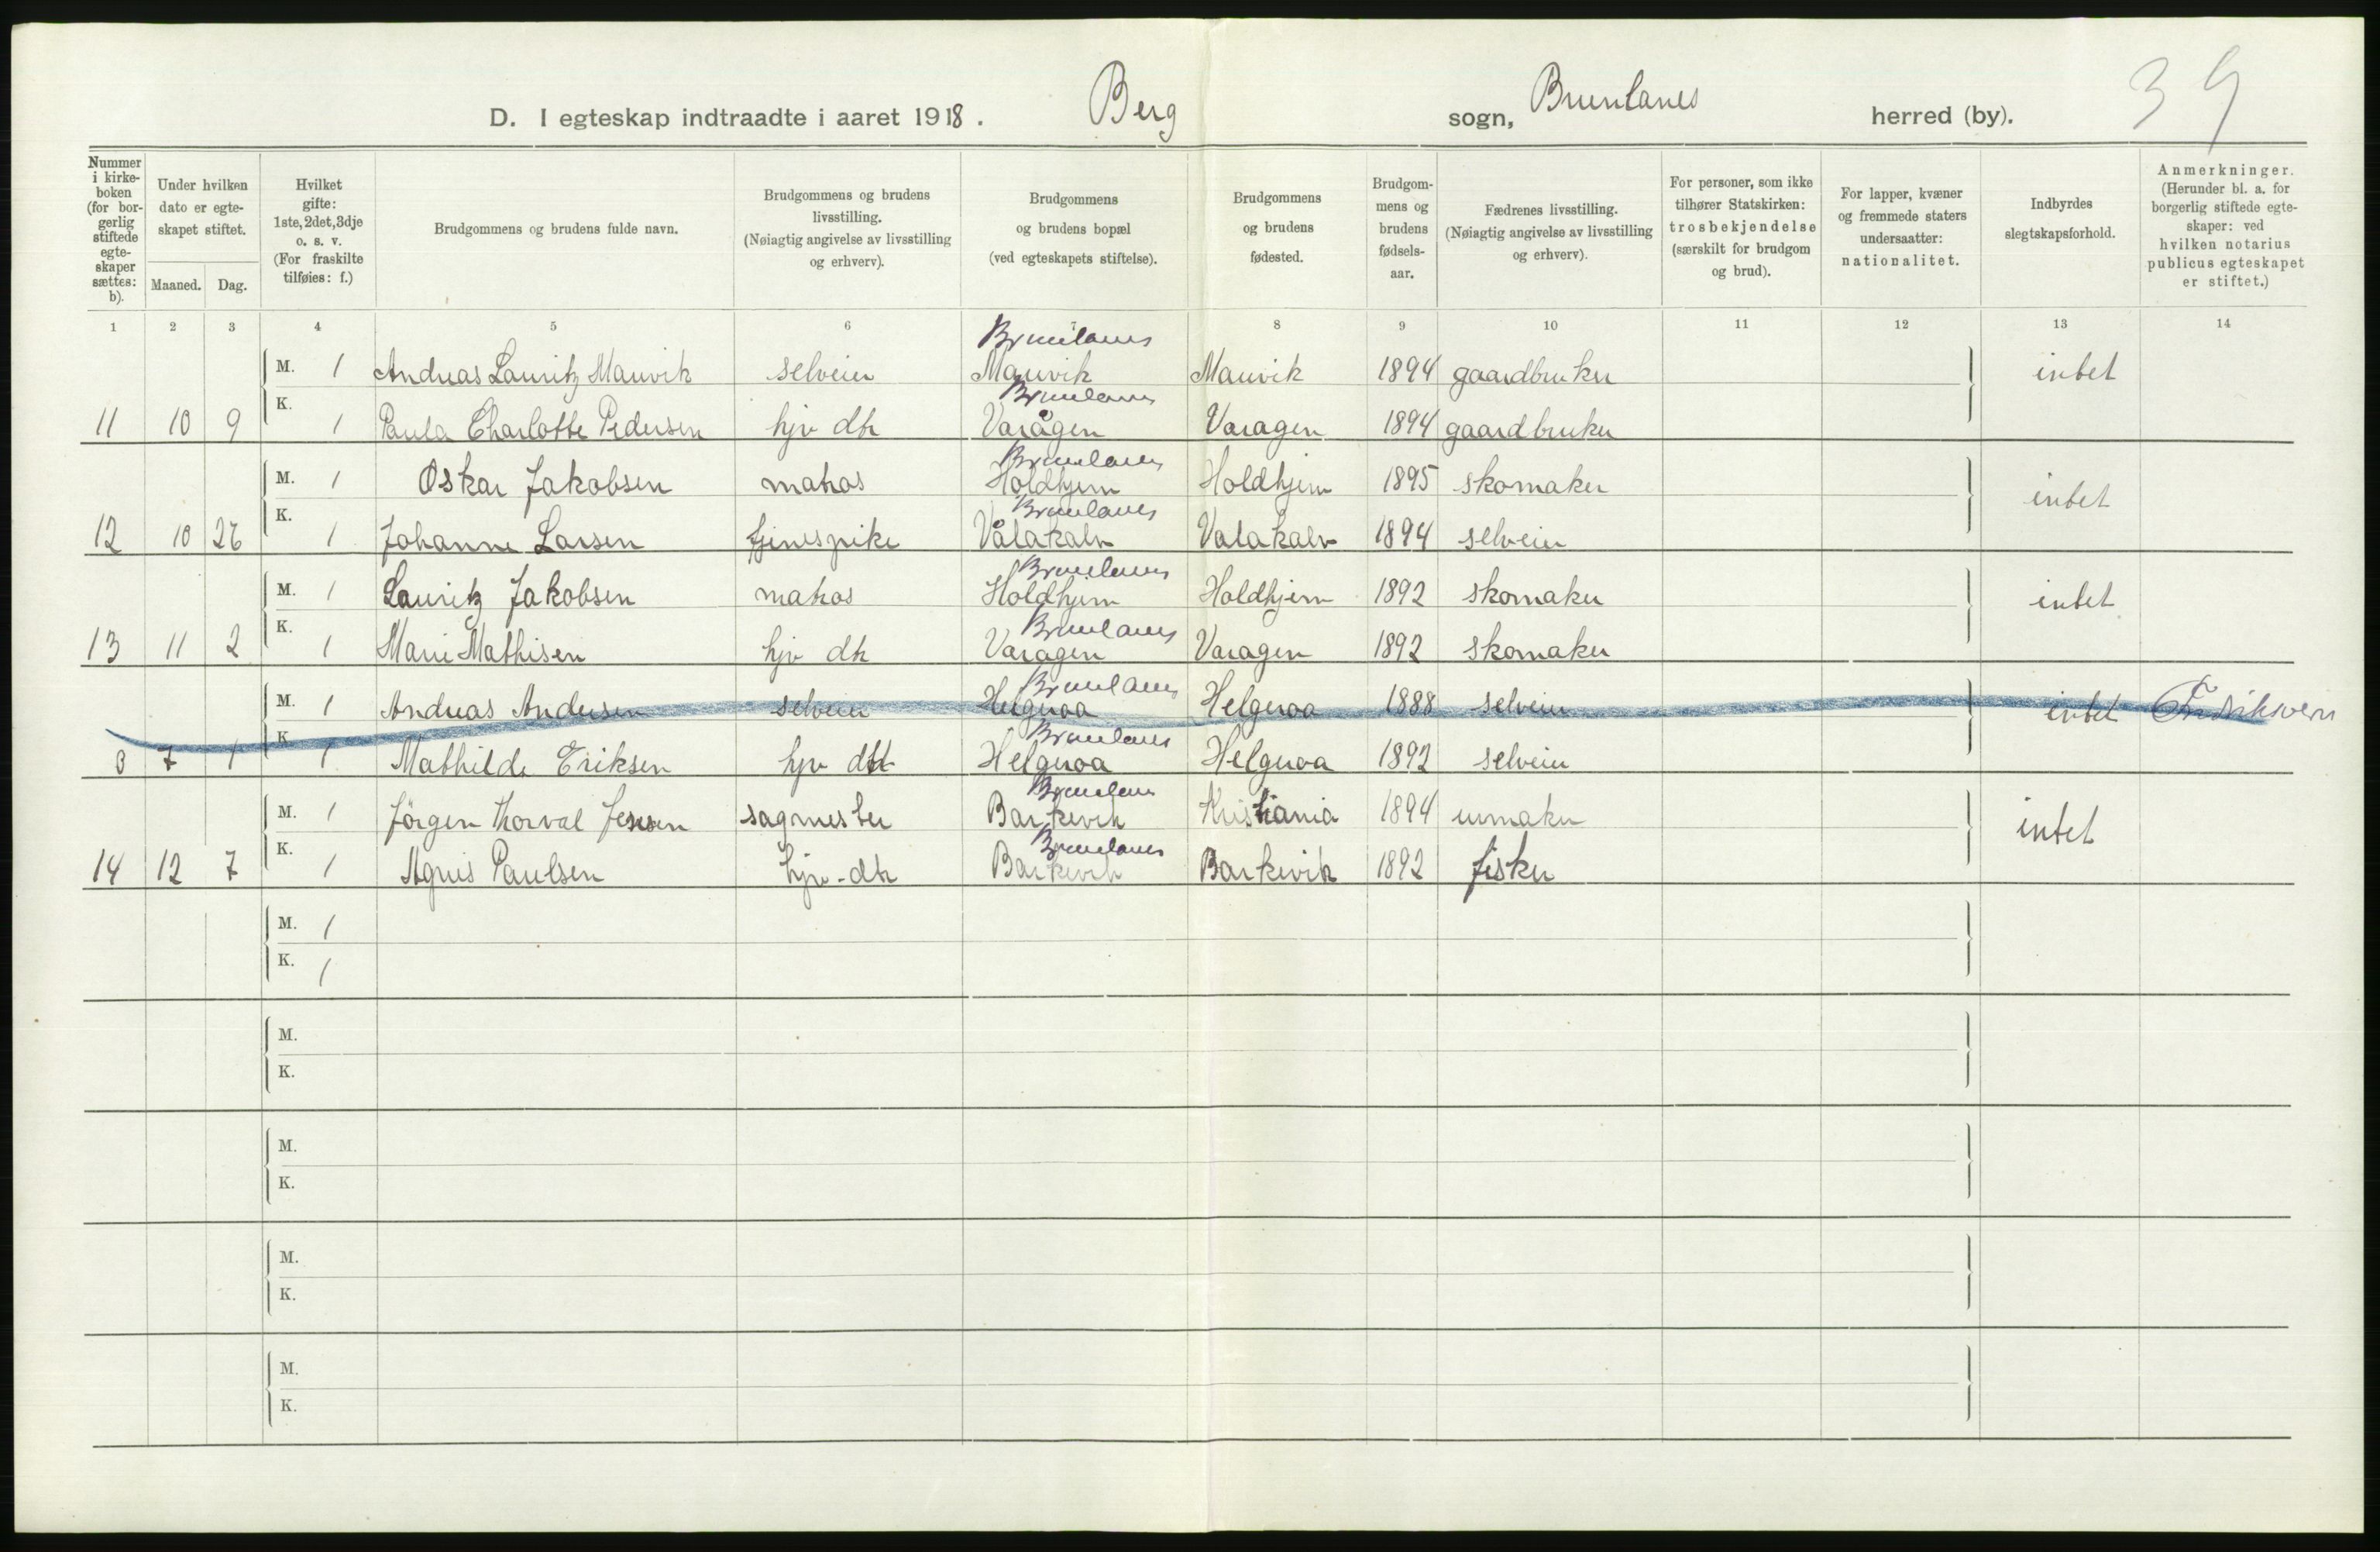 39
D. I egteskap indtraadte i aaret 1918. Berg sogn, Brunlanes herred (by).
Nummer i kirkeboken (for borgerlig stiftede egteskaper sættes: b).
Under hvilken dato er egteskapet stiftet.
Maaned. Dag.
Hvilket gifte: 1ste, 2det, 3dje o. s. v. (For fraskilte tilføies: f.)
Brudgommens og brudens fulde navn.
Brudgommens og brudens livsstilling. (Nøiagtig angivelse av livsstilling og erhverv).
Brudgommens og brudens bopæl (ved egteskapets stiftelse).
Brudgommens og brudens fødested.
Brudgommens og brudens fødselsaar.
Fædrenes livsstilling. (Nøiagtig angivelse av livsstilling og erhverv).
For personer, som ikke tilhører Statskirken: trosbekjendelse (særskilt for brudgom og brud).
For lapper, kvæner og fremmede staters undersaatter: nationalitet.
Indbyrdes slegtskapsforhold.
Anmerkninger. (Herunder bl. a. for borgerlig stiftede egteskaper: ved hvilken notarius publicus egteskapet er stiftet.)
1 2 3 4 5 6 7 8 9 10 11 12 13 14
Brunlanes
M. 1 Andreas Lauritz Mauvik selveier Mauvik Mauvik 1894 gaardbruker intet
Brunlanes
11 10 9 K. 1 Paula Charlotte Pedersen hjv dtr Varågen Varagen 1894 gaardbruker
Brunlanes
M. 1 Oskar Jakobsen matros Holdhjem Holdhjem 1895 skomaker intet
Brunlanes
12 10 26 K. 1 Johanne Larsen tjenespike Vålakalv Valakalv 1894 selveier
Brunlanes
M. 1 Lauritz Jakobsen matros Holdhjem Holdhjem 1892 skomaker intet
Brunlanes
13 11 2 K. 1 Marie Mathisen hjv dtr Varagen Varagen 1892 skomaker
Brunlanes
M. 1 Andreas Andersen selveier Helgeroa Helgeroa 1888 selveier intet Fredriksvern
Brunlanes
7 1 K. 1 Mathilde Eriksen hjv dtr Helgeroa Helgeroa 1892 selveier
Brunlanes
M. 1 Jörgen Thorval Jensen sagmester Barkevik Kristiania 1894 urmaker intet
Brunlanes
14 12 7 K. 1 Agnes Paulsen hjv-dtr Barkevik Barkevik 1892 fisker
M. 1
K. 1
M.
K.
M.
K.
M.
K.
M.
K.